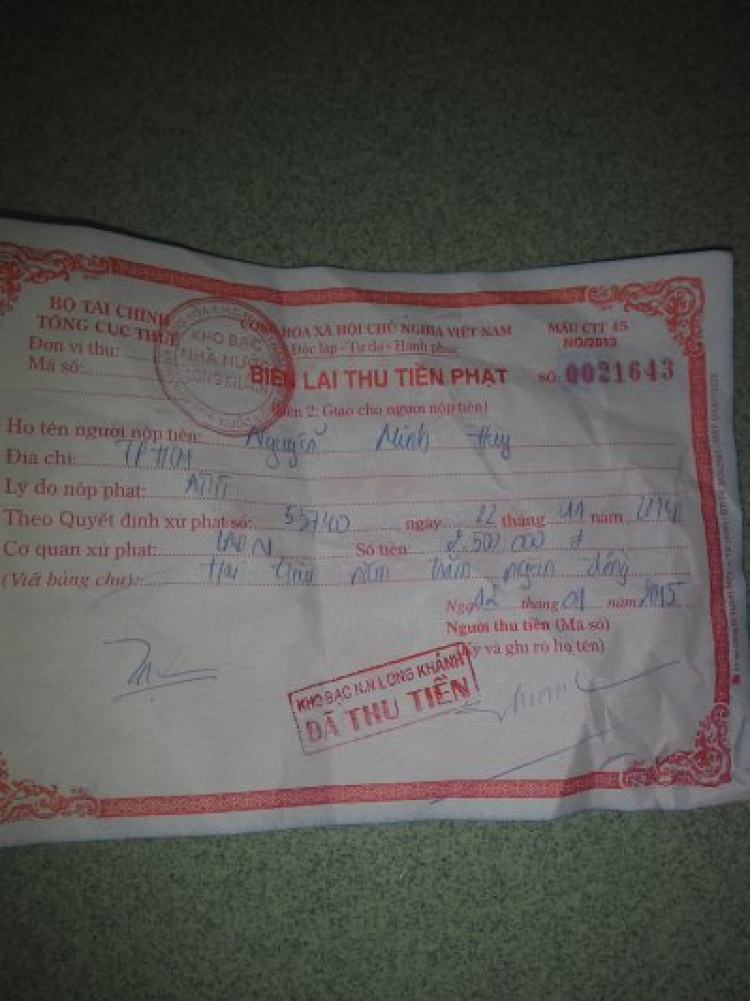 BỘ TÀI CHÍNH
TỔNG CỤC THUẾ
Đơn vị thu:
Mã số:
KHO BẠC
NHÀ NƯỚC
LONG KHÁNH
CỘNG HÒA XÃ HỘI CHỦ NGHĨA VIỆT NAM
Độc lập - Tự do - Hạnh phúc
MẪU CTT 45
NO/2013
BIÊN LAI THU TIỀN PHẠT
SỐ: 0021643
(Liên 2: Giao cho người nộp tiền)
Họ tên người nộp tiền: Nguyễn Minh Huy
Địa chỉ: TP HCM
Lý do nộp phạt: ATGT
Theo Quyết định xử phạt số: 55740 ngày 22 tháng 11 năm 2014
Cơ quan xử phạt: Số tiền: 2.500 000 đ
(Viết bằng chữ): Hai triệu năm trăm ngàn đồng
Ngày 12 tháng 01 năm 2015
Người thu tiền (Mã số)
(Ký và ghi rõ họ tên)
KHO BẠC N.N LONG KHÁNH
ĐÃ THU TIỀN